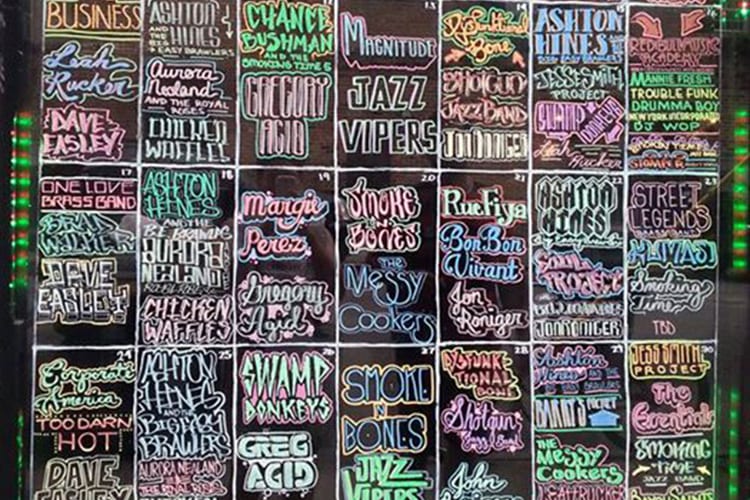 BUSINESS
Leah
Rucker
DAVE
EASLEY
ASHTON
HINES
AND THE
BIG EASY BRAWLERS
Aurora
Nealand
AND THE ROYAL
ROSES
CHICKEN
WAFFLES
CHANCE
BUSHMAN
AND THE
SMOKING TIME 5
GREGORY
AGID
13
MAGNITUDE
JAZZ
VIPERS
14
Dysfunktional
Bone
SHOTGUN
JAZZ BAND
JON RONIGER
ASHTON
HINES
BIG EASY BRAWLERS
JESSE SMITH
PROJECT
SWAMP
DONKEYS
Leah
Rucker
REDBULL MUSIC
ACADEMY
MANNIE FRESH
TROUBLE FUNK
DRUMMA BOY
NEW YORK INCORPORATED
DJ WOP
17
ONE LOVE
BRASS BAND
BRAD
WALKER
DAVE
EASLEY
18
ASHTON
HINES
AND THE
B.E. BRAWLERS
AURORA
NEALAND
ROYAL ROSES
CHICKEN
WAFFLES
19
Margie
Perez
Gregory
Agid
20
SMOKE
N
BONES
THE
Messy
Cookers
21
Rue Fiya
Bon Bon
Vivant
Jon
Roniger
22
ASHTON
HINES
SOUL
PROJECT
JON RONIGER
23
STREET
LEGENDS
BRASS BAND
KUMASI
Smoking
Time
TBD
24
Corporate
America
TOO DARN
HOT
DAVE
EASLEY
25
ASHTON
HINES
AND THE
BIG EASY
BRAWLERS
AURORA NEALAND
AND
THE ROYAL ROSES
26
SWAMP
DONKEYS
GREG
AGID
27
SMOKE
N
BONES
JAZZ
VIPERS
28
DYSFUNK
TIONAL
BONE
Shotgun
Jazz Band
John
29
Ashton
Hines AND THE
BIG EASY BRAWLERS
THE
Messy
Cookers
30
JESS SMITH
PROJECT
The
Essentials
SMOKING
TIME
JAZZ BAND